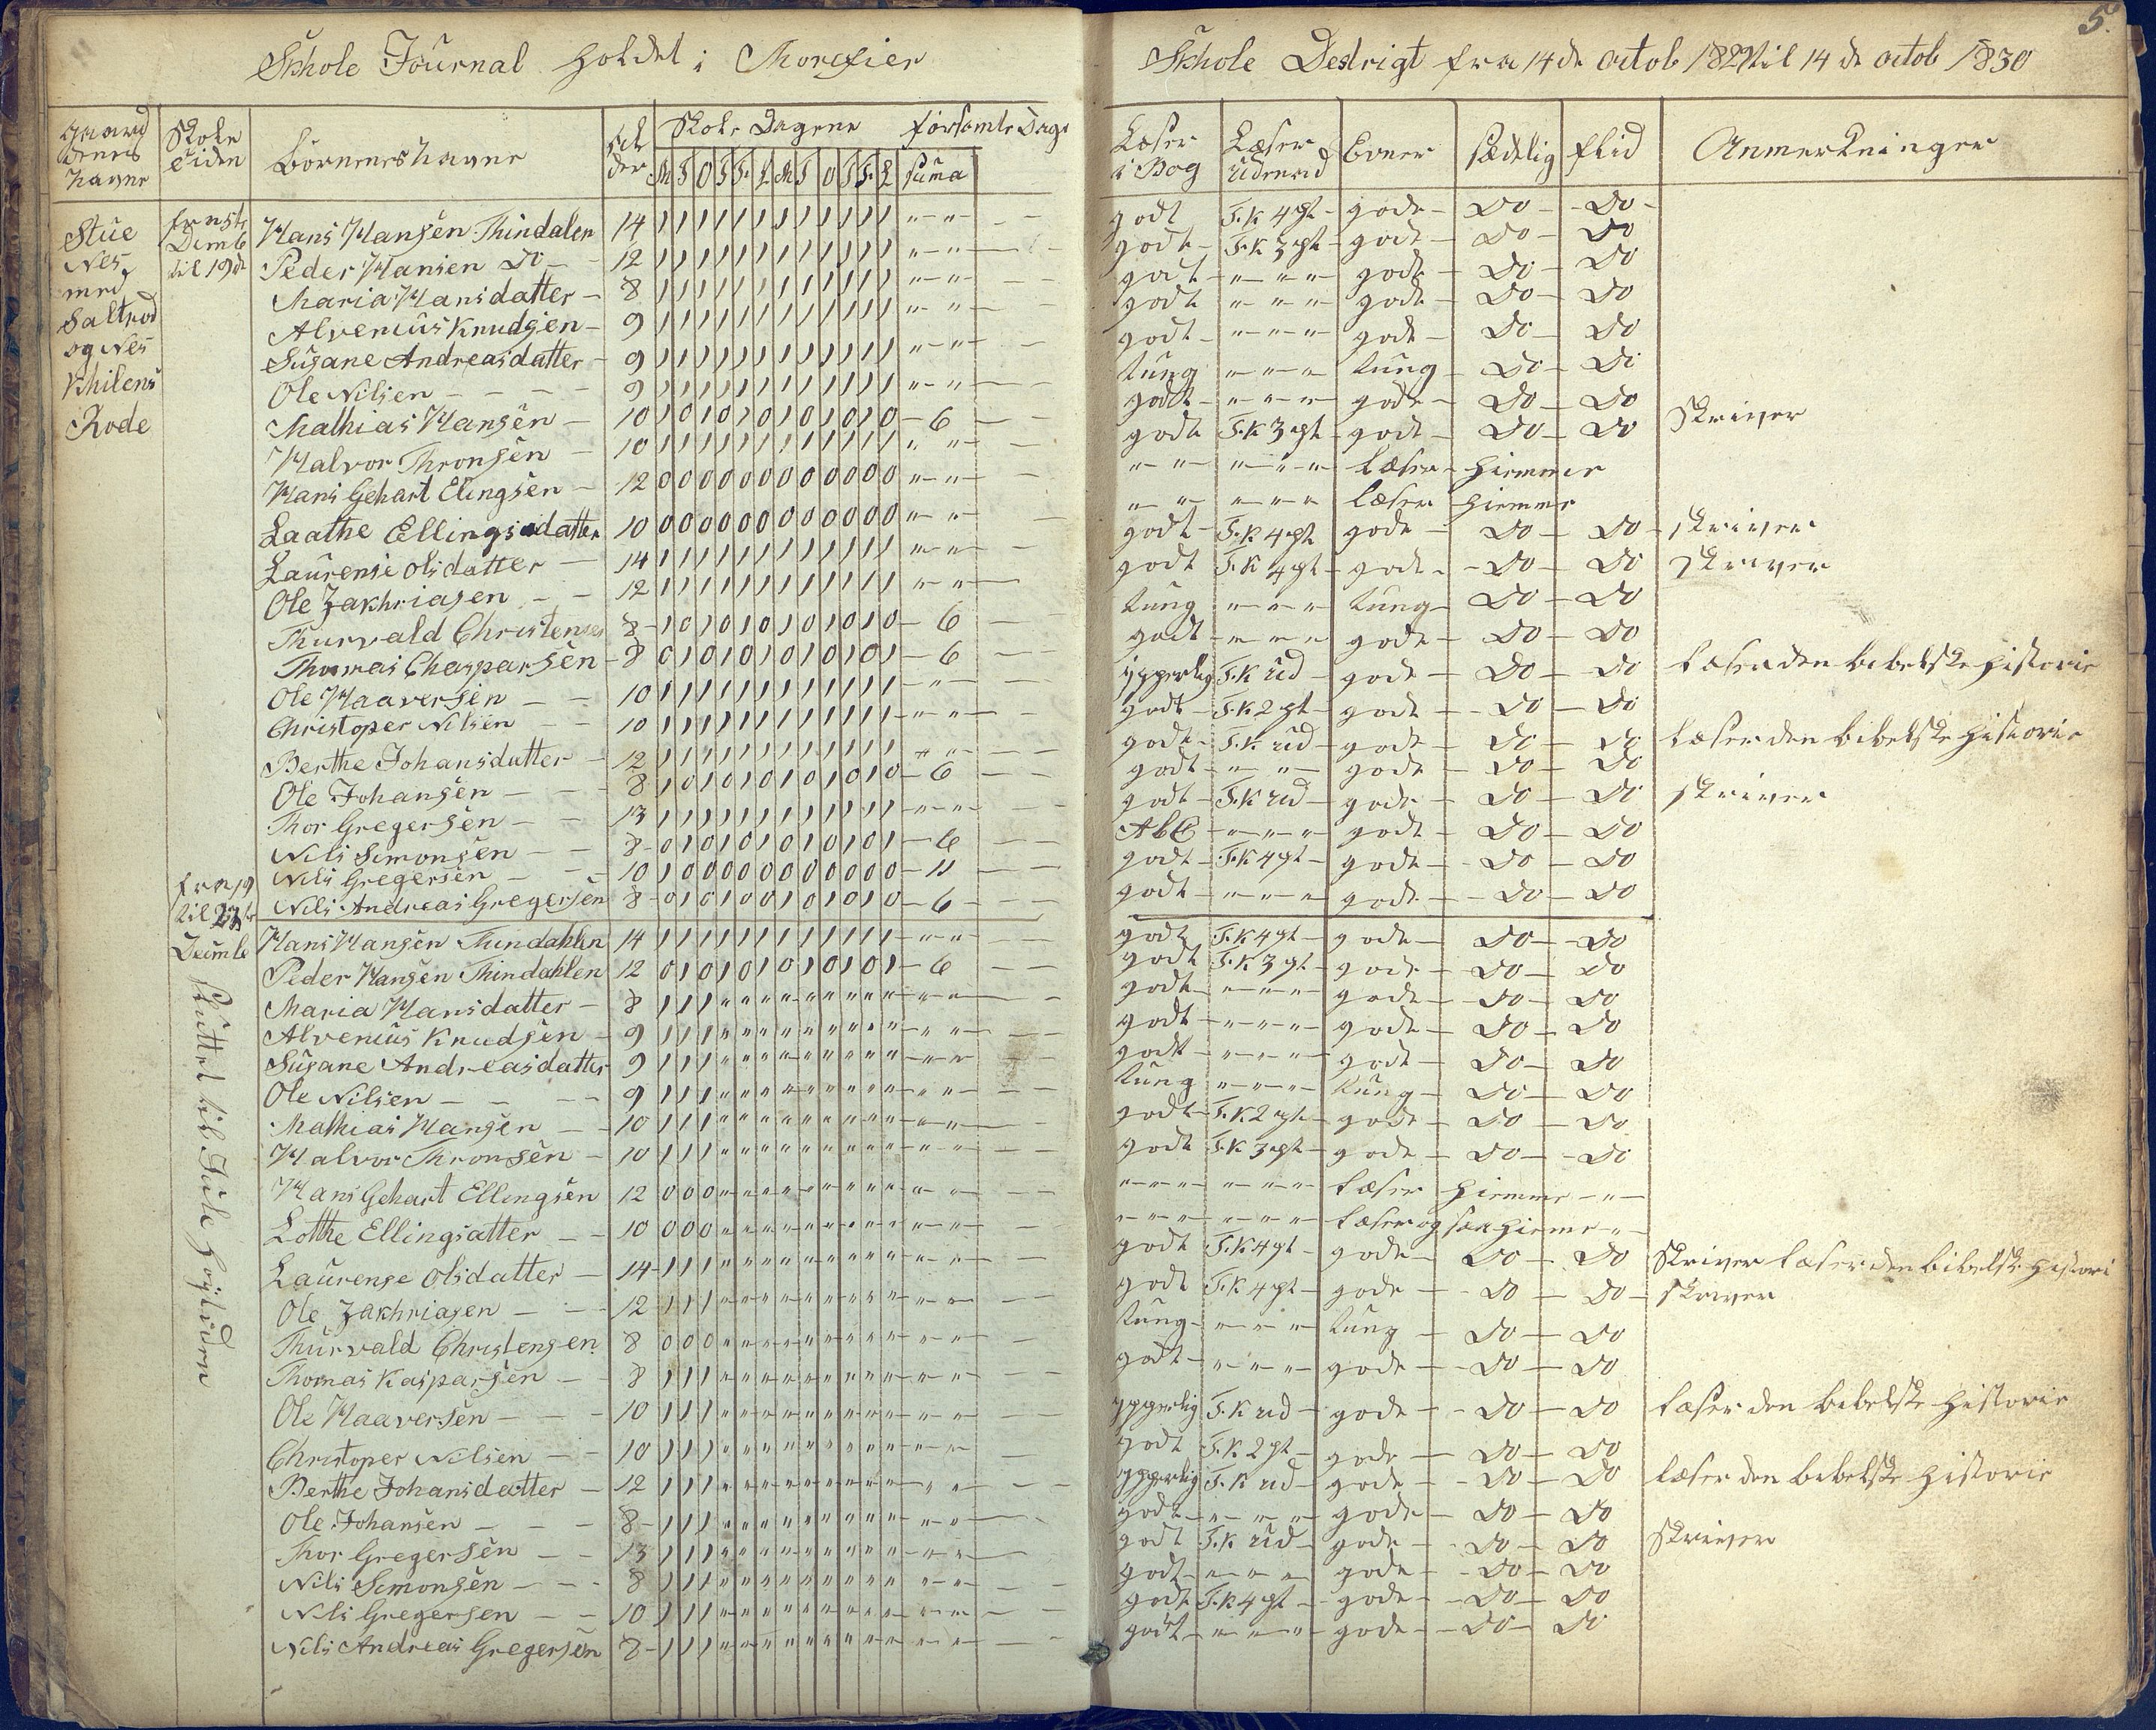 5.
Skhole Journal holdet i Thorefier Skhole Destrigt fra 14de octob 1829 til 14de octob 1830
Gaardenes navne | Skoletiden | Børnenes navne | Alder | Skole Dagene | forsømte Dage
M T O T F L M T O T F L Suma
Læser i Bog | Læser udenad | Evner | sædelig | flid | Anmerkninger
Stue Nes med Saltrød og Nes Khilens Rode
til 19de
Hans Hansen Thindalen 14 1 1 1 1 1 1 1 1 1 1 1 1 " " godt T.K 4 pt gode Do Do
Peder Hansen Do 12 1 1 1 1 1 1 1 1 1 1 1 1 " " godt T.K 3 pt gode Do Do
Maria Hansdatter 8 1 1 1 1 1 1 1 1 1 1 1 1 " " godt " " " gode Do Do
Alvenius Knudsen 9 1 1 1 1 1 1 1 1 1 1 1 1 " " godt " " " gode Do Do
Susane Andreasdatter 9 1 1 1 1 1 1 1 1 1 1 1 1 " " godt " " " gode Do Do
Ole Nilsen 9 1 1 1 1 1 1 1 1 1 1 1 1 " " tung " " " tung Do Do
Mathias Hansen 10 1 0 1 0 1 0 1 0 1 0 1 0 6 godt " " " gode Do Do
Halvor Thronsen 10 1 1 1 1 1 1 1 1 1 1 1 1 " " godt T.K 3 pt gode Do Do skriver
Hans Gehart Elingsen 12 0 0 0 0 0 0 0 0 0 0 0 0 " " " " " " " læser hiemme
Laathe Ellingsdatter 10 0 0 0 0 0 0 0 0 0 0 0 0 " " " " " " " læser hiemme
Laurense Olsdatter 14 1 1 1 1 1 1 1 1 1 1 1 1 " " godt T.K 4 pt gode Do Do skriver
Ole Zakhriasen 12 1 1 1 1 1 1 1 1 1 1 1 1 " " godt T.K 4 pt gode Do Do skriver
Thurvald Christensen 8 1 0 1 0 1 0 1 0 1 0 1 0 6 tung " " " tung Do Do
Thomas Chasparsen 8 0 1 0 1 0 1 0 1 0 1 0 1 6 godt " " " gode Do Do
Ole Haaversen 10 1 1 1 1 1 1 1 1 1 1 1 1 " ypperlig T.K ud gode Do Do læser den bibelske historie
Christoper Nilsen 10 1 1 1 1 1 1 1 1 1 1 1 1 " " godt T.K 2 pt gode Do Do
Berthe Johansdatter 12 1 1 1 1 1 1 1 1 1 1 1 1 " " godt T.K ud gode Do Do læser den bibelske historie
Ole Johansen 8 1 0 1 0 1 0 1 0 1 0 1 0 6 godt " " gode Do Do
Thor Gregersen 13 1 1 1 1 1 1 1 1 1 1 1 1 " " godt T.K ud gode Do Do skriver
Nils Simonsen 8 0 1 0 1 0 1 0 1 0 1 0 1 6 AbC " " " gode Do Do
Nils Gregersen 10 1 0 0 0 0 0 0 0 0 0 0 0 11 godt T.K 4 pt gode Do Do
Nils Andreas Gregersen 8 0 1 0 1 0 0 1 0 1 0 1 0 6 godt " " " gode Do Do
fra 19 til 23de Decmbe
Sluttet til Jule høytiden
Hans Hansen Thindahlen 14 1 1 1 1 1 1 1 1 1 1 1 1 " " godt T.K 4 pt gode Do Do
Peder Hansen Thindahlen 12 0 1 0 1 0 1 0 1 0 1 0 1 6 godt T.K 3 pt gode Do Do
Maria Hansdatter 8 1 1 1 " " " " " " " " " " " godt " " " gode Do Do
Alvenius Knudsen 9 1 1 1 " " " " " " " " " " " godt " " " gode Do Do
Susane Andreasdatter 9 1 1 1 " " " " " " " " " " " godt " " " gode Do Do
Ole Nilsen 9 1 1 1 " " " " " " " " " " " tung " " " tung Do Do
Mathias Hansen 10 1 1 1 " " " " " " " " " " " godt T.K 2 pt gode Do Do
Halvor Thronsen 10 1 1 1 " " " " " " " " " " " godt T.K 3 pt gode Do Do
Hans Gehart Ellingsen 12 0 0 0 " " " " " " " " " " " " " " " " " læser hiemme "
Lothe Ellingsatter 10 0 0 0 " " " " " " " " " " " " " " " " " læser og hieme "
Laurense Olsdatter 14 1 1 1 " " " " " " " " " " " godt T.K 4 pt gode Do Do skriver læser den bibelsk histori
Ole Zakhriasen 12 1 1 1 " " " " " " " " " " " godt T.K 4 pt gode Do Do skriver
Thurvald Christensen 8 0 0 0 " " " " " " " " " " " tung " " " tung Do Do
Thomas Kasparsen 8 1 1 1 " " " " " " " " " " " godt " " " gode Do Do
Ole Haaversen 10 1 1 1 " " " " " " " " " " " ypperlig T.K ud gode Do Do læser den bibelske historie
Christoper Nilsen 10 1 1 1 " " " " " " " " " " " godt T.K 2 pt gode Do Do
Berthe Johansdatter 12 1 1 1 " " " " " " " " " " " ypperlig T.K ud gode Do Do læser den bibelske historie
Ole Johansen 8 1 1 1 " " " " " " " " " " " godt " " " gode Do Do
Thor Gregersen 13 1 1 1 " " " " " " " " " " " godt T.K ud gode Do Do skriver
Nils Simonsen 8 1 1 1 " " " " " " " " " " " godt " " " gode Do Do
Nils Gregersen 10 1 1 1 " " " " " " " " " " " godt T.K 4 pt gode Do Do
Nils Andreas Gregersen 8 1 1 1 " " " " " " " " " " " godt " " " gode Do Do